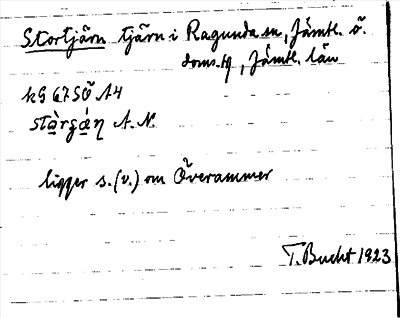 Stortjärn tjärn i Ragunda sn, Jämtl. ö.
doms.hd, Jämtl. län
kg 6750 A4
A. N.
ligger s.(v.) om Överammer
T. Bucht 1923